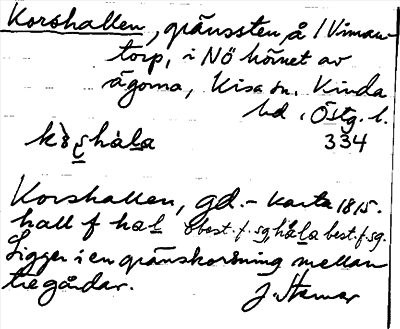 Korshallen, gränssten, å 1 Viman-
torp, i NÖ hörnet av
ägorna, Kisa sn. Kinda
hd, Östg. l.
334
Korshallen, gd. – Karta 1815.
hall f hal obest. f. sg, håla best. f. sg.
Ligger i en gränskorsning mellan
tre gårdar.